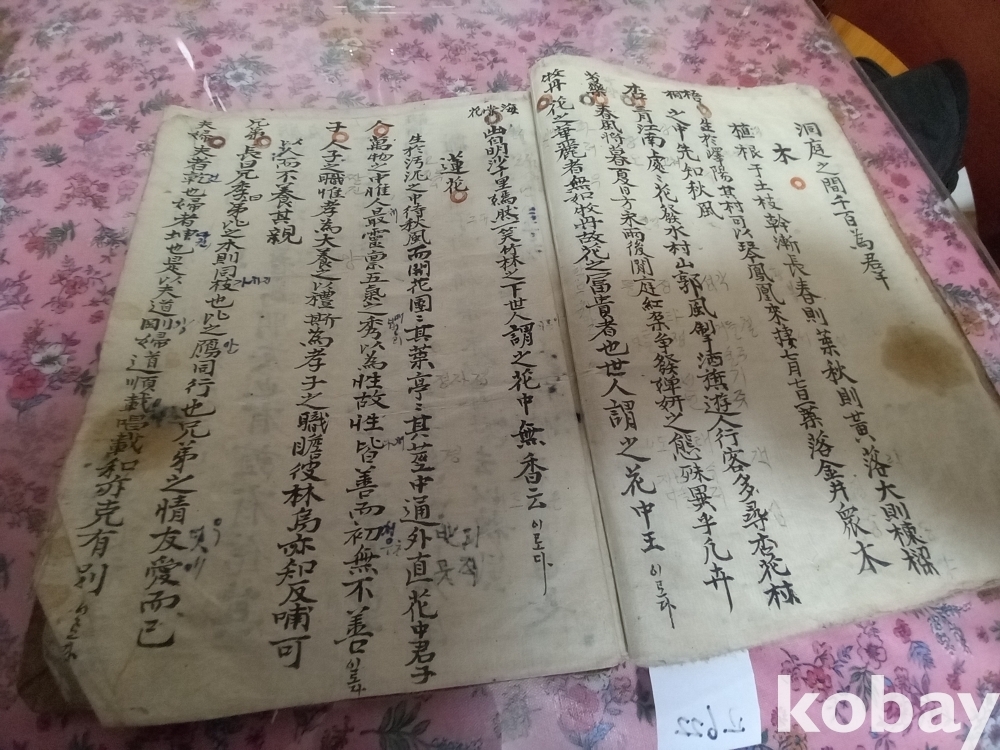 洞庭之間千百萬君乎
木
植根于土枝幹漸長春則葉秋則黃落大則棟樑
梧桐
生於嶧陽其材可以琴鳳凰來棲七月七日一葉落金井衆木
之中先知秋風
杏
二月江南處之花發水村山郭風制洒旗遊人行客多尋杏花村
芍藥
春風將暮夏日方来雨後閒庭紅朶争發婵妍之態殊異乎凡卉
牧丹
花之華麗者無如牧丹故花之富貴者也世人謂之花中王 이로다
海棠花
出留明沙十里嫣然一笑竹林之下世人謂之花中無香云 이로다.
蓮花
生於汚泥之中待秋風而開花團々其葉亭々其莖中通外直花中君子
人
萬物之中惟人最靈禀五氣之秀以為性故性皆善而初無不善 이로다
子
人子之職惟孝為大養之以禮斯為孝子之職瞻彼林烏亦知反哺可
以人而不養其親
兄弟
長曰兄季曰弟比之木則同枝也比之鴈同行也兄弟之情友愛而已
夫婦
夫者乾也婦者坤也是以夫道剛婦道順載唱載和亦克有別
kobay